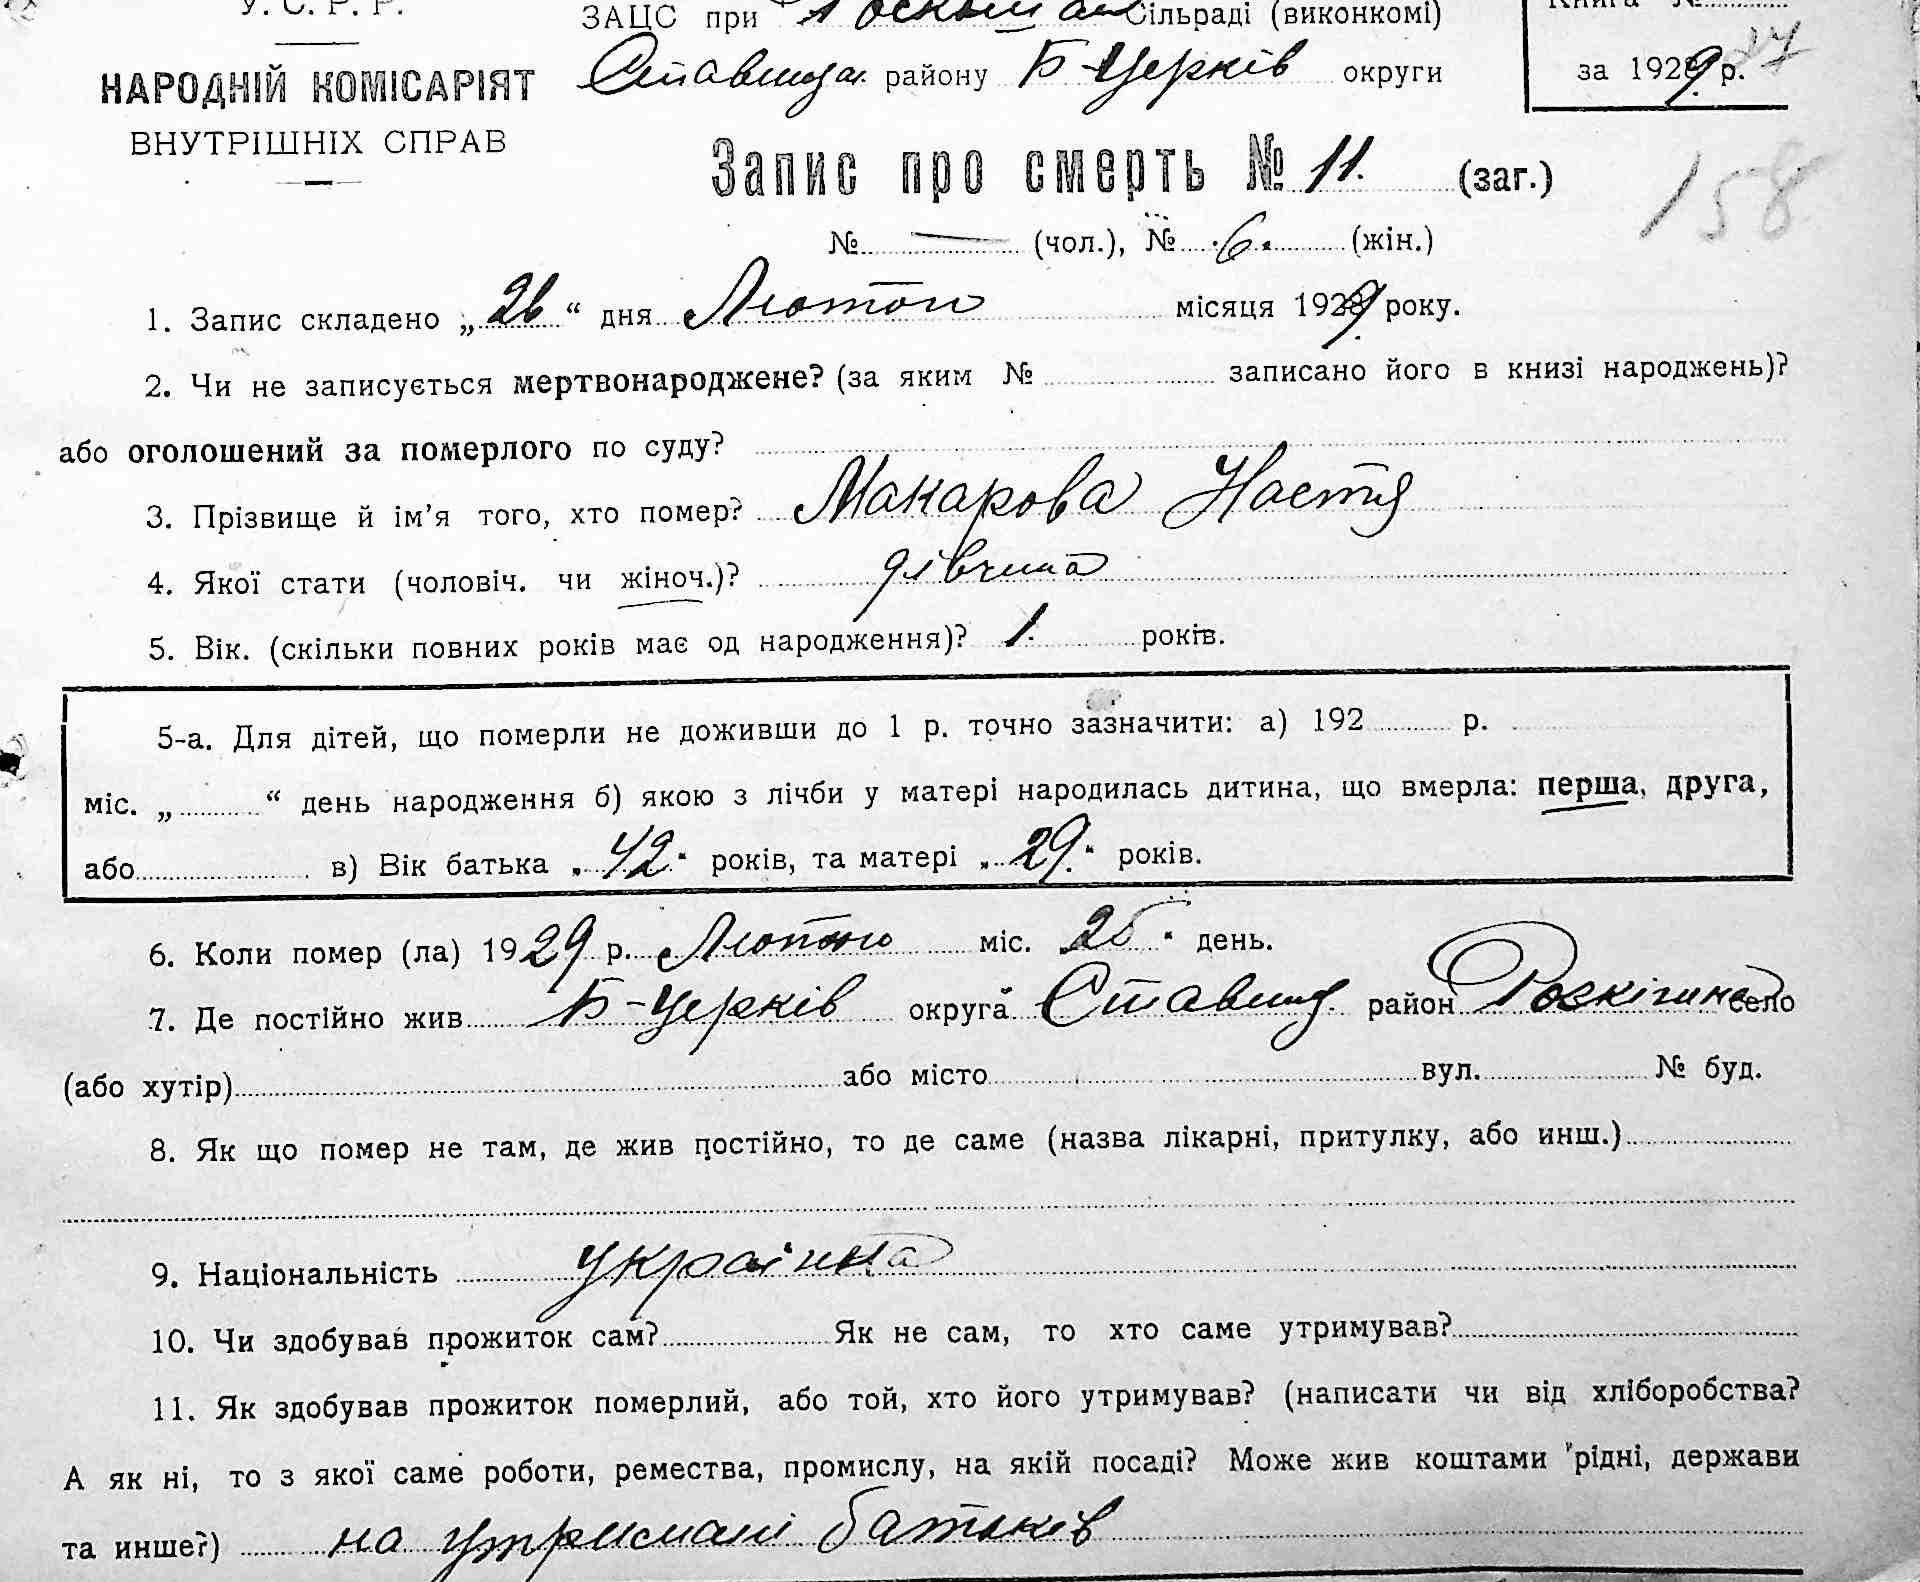 У. С. Р. Р.
НАРОДНІЙ КОМІСАРІЯТ
ВНУТРІШНІХ СПРАВ
ЗАЦС при Сільраді (виконкомі)
Ставищан. району Б-Церків округи
Книга №
за 1929 р. 27
158
Запис про смерть № 11. (заг.)
№ — (чол.), № 6. (жін.)
1. Запис складено „ 26 “ дня Лютого місяця 1929 року.
2. Чи не записується мертвонароджене? (за яким № записано його в книзі народжень)?
або оголошений за померлого по суду?
3. Прізвище й ім'я того, хто помер? Макарова Настя
4. Якої стати (чоловіч. чи жіноч.)? дівчина
5. Вік. (скільки повних років має од народження)? 1. років.
5-а. Для дітей, що померли не доживши до 1 р. точно зазначити: а) 192 р.
міс. „ “ день народження б) якою з лічби у матері народилась дитина, що вмерла: перша, друга,
або в) Вік батька „ 42 “ років, та матері „ 29. “ років.
6. Коли помер (ла) 1929 р. Лютого міс. 25 “ день.
7. Де постійно жив Б-Церків округа Ставищ. район село
(або хутір) або місто вул. № буд.
8. Як що помер не там, де жив постійно, то де саме (назва лікарні, притулку, або инш.)
9. Національність українка
10. Чи здобував прожиток сам? Як не сам, то хто саме утримував?
11. Як здобував прожиток померлий, або той, хто його утримував? (написати чи від хліборобства?
А як ні, то з якої саме роботи, ремества, промислу, на якій посаді? Може жив коштами рідні, держави
та инше?) на утримані батьків